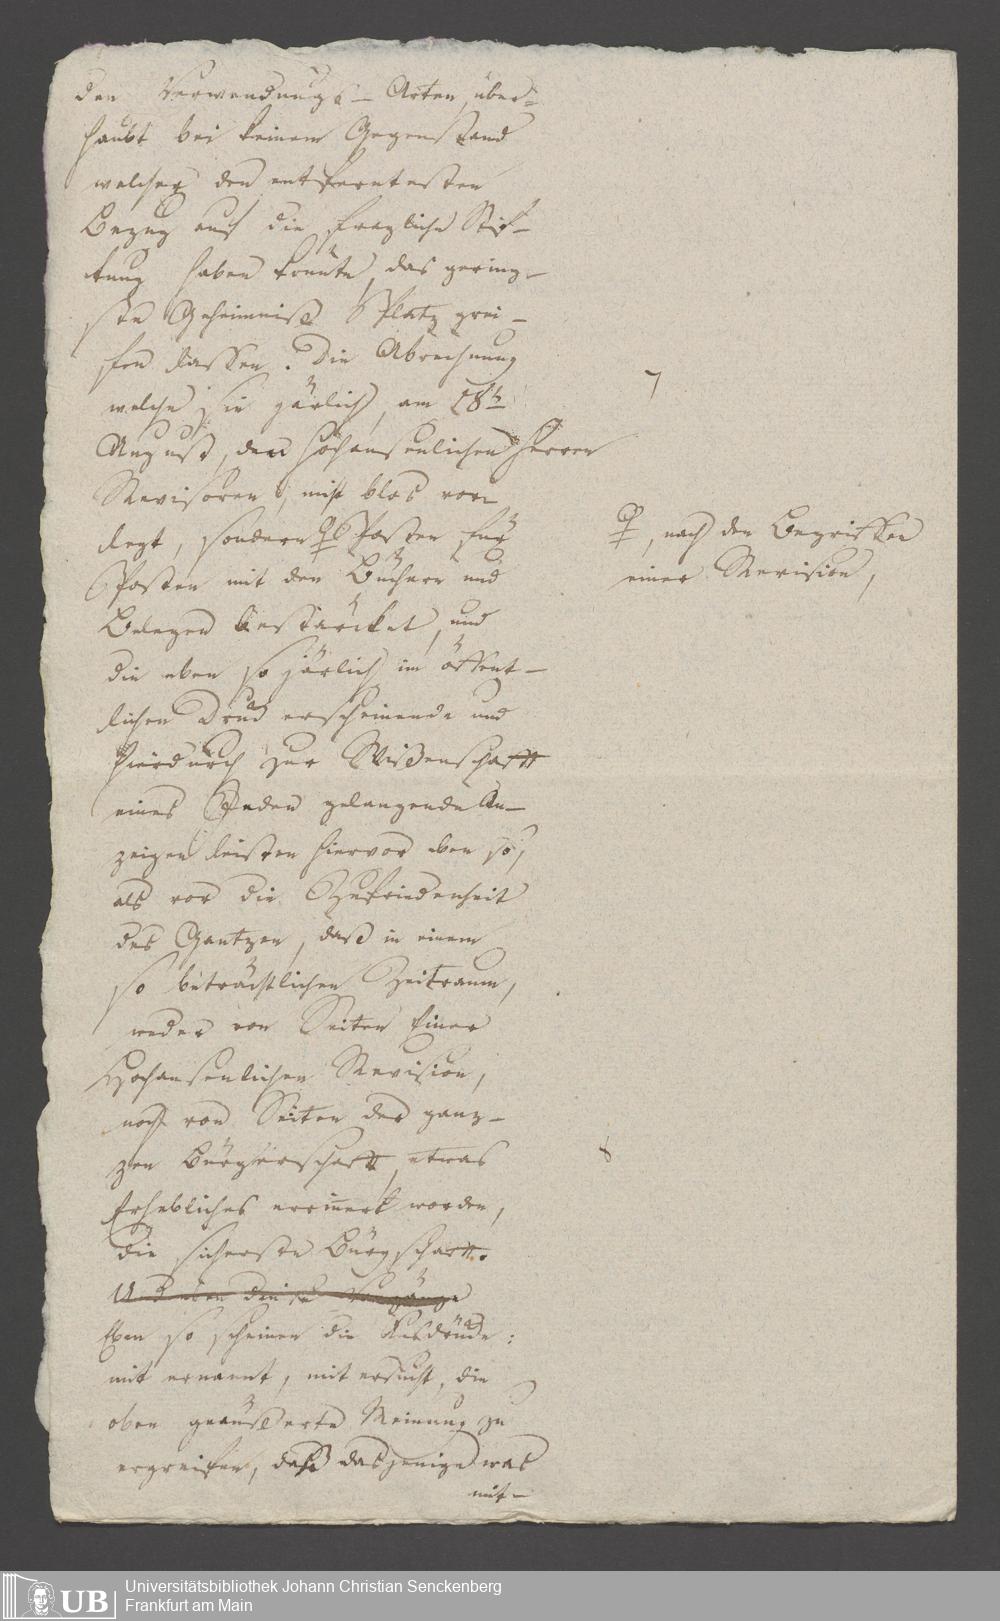 den Verwendungs-Arten, über-
haubt bei keinem Gegenstand
welcher den entferntesten
Bezug auf die fragliche Stif-
tung haben könnte, das gering-
ste Geheimniß Platz grei-
fen lassen. Die Abrechnung
welche sie järlich, am 18ⁿ
August, den Hochansenlichen Herren
Revisoren, nicht blos vor-
legt, sondern Posten für
Posten mit den Büchern und
Belegen bestärcket, und
die eben so järlich im öffent-
lichen Druck erscheinende und
hierdurch zur Wißenschafft
eines Jeden gelangende An-
zeigen leisten hiervor eben so,
als vor die Zufriedenheit
des Gantzen, daß in einem
so beträchtlichen Zeitraum,
weder von Seiten Einer
Hochansenlichen Revision,
noch von Seiten der ganz-
zen Bürgerschafft etwas
Erhebliches erinnert worden,
die sicherste Bürgschafft.
Eben so scheinen die Ausdrücke:
mit ernannt, mit ersucht, die
oben geäußerte Meinung zu
ergreifen, daß dasjenige was
mit-
, nach den Begriffen
einer Revision,
UB
Universitätsbibliothek Johann Christian Senckenberg
Frankfurt am Main